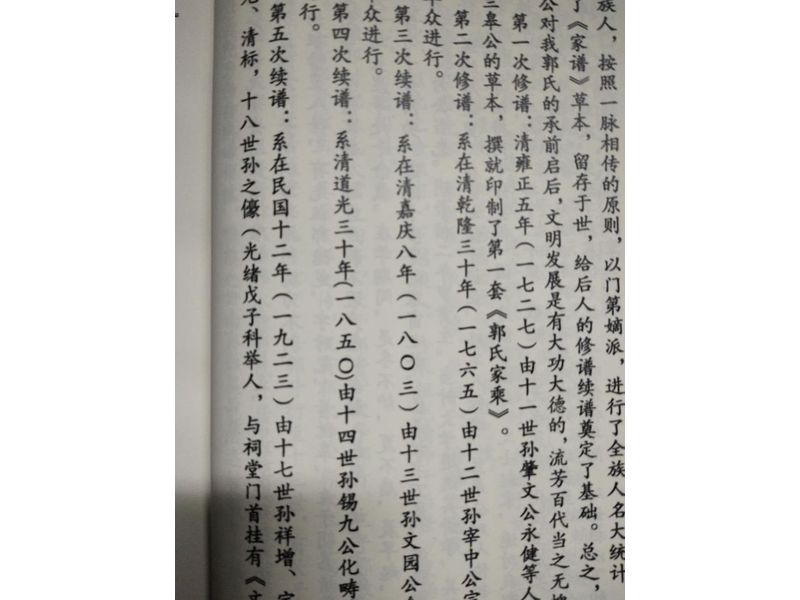 族人，按照一脉相传的原则，以门第嫡派，进行了全族人名大统计
了《家谱》草本，留存于世，给后人的修谱续谱奠定了基础。总之，
公对我郭氏的承前启后，文明发展是有大功大德的，流芳百代当之无愧
第一次修谱：清雍正五年（一七二七）由十一世孙肇文公永健等人
三皋公的草本，撰就印制了第一套《郭氏家乘》。
第二次修谱：系在清乾隆三十年（一七六五）由十二世孙宰中公
众进行。
第三次续谱：系在清嘉庆八年（一八〇三）由十三世孙文园公
众进行。
第四次续谱：系清道光三十年（一八五〇）由十四世孙锡九公化畴
行。
第五次续谱：系在民国十二年（一九二三）由十七世孙祥增、
、清标，十八世孙之儫（光绪戊子科举人，与祠堂门首挂有《